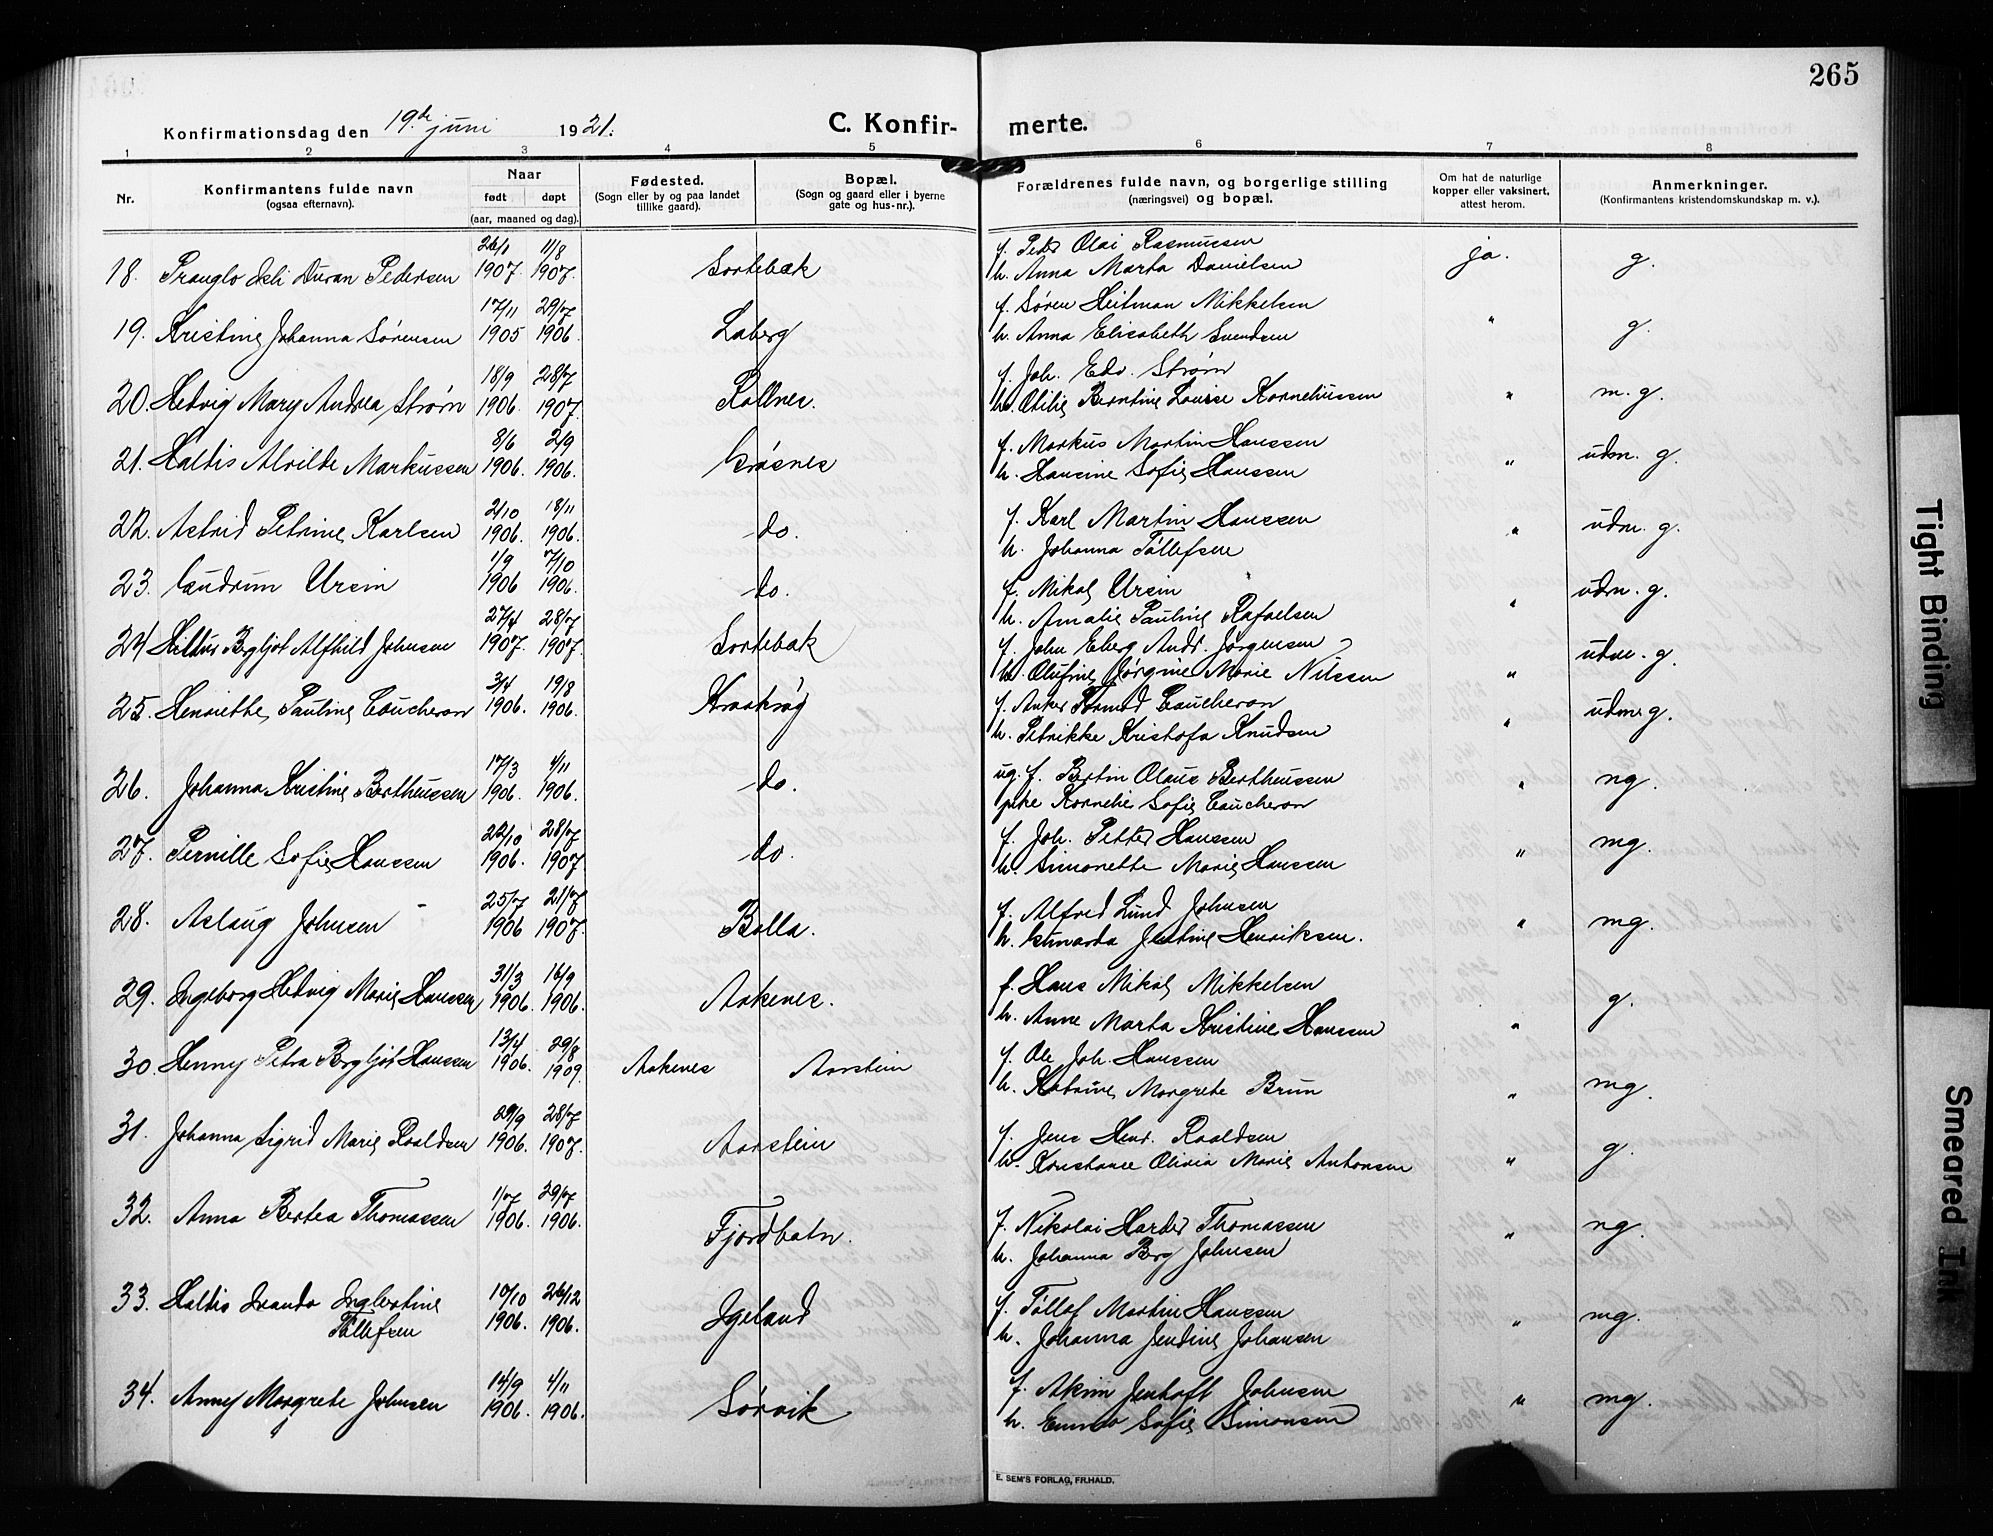 265
Konfirmationsdag den 19de juni 1921. C. Konfir- merte.
1 2 3 4 5 6 7 8
Nr. Konfirmantens fulde navn (ogsaa efternavn). Naar født døpt (aar, maaned og dag). Fødested. (Sogn eller by og paa landet tillike gaard). Bopæl. (Sogn og gaard eller i byerne gate og hus-nr.). Forældrenes fulde navn, og borgerlige stilling (næringsvei) og bopæl. Om hat de naturlige kopper eller vaksinert, attest herom. Anmerkninger. (Konfirmantens kristendomskundskap m. v.).
26/1 11/8 f. Peder Olai Rasmussen
18. Duran Pedersen 1907. 1907. Sortebæk h. Anna Marta Danielsen ja. g.
17/11 29/7 f. Søren Heitman Mikkelsen
19. Kristine Johanna Sørensen 1905 1906. Laberg h. Anna Elisabeth Svendsen " g.
18/9 28/7 f. Joh. Edv. Strøm
20. Hedvig Mary Andrea Strøm 1906. 1907. Rollnes. h. Otilie Berntine Louise Korneliussen " m.g.
8/6 2/9 f. Markus Martin Hanssen
21. Haldis Alvilde Markussen 1906. 1906. Grøsnes h. Hansine Sofie Hanssen " udm. g.
2/10 18/11 f. Karl Martin Hanssen
22. Astrid Petrine Karlsen 1906. 1906. do. h. Johanna Tøllefsen " udm. g.
1/9 7/10
23. Gudrun Ursin 1906 1906. do. f. Nikolai Ursin " udm. g.
27/4 28/7 h. Amalie Pauline Rafaelsen
24 Bergljot Alfhild Johnsen 1907. 1907. Sortebæk f. John Eberg Andr. Jørgensen udm. g.
3/4 19/8 h. Olufine Jørgine Marie Nilssen "
25. Henriette Pauline Coucheron 1906. 1906. Kraakrøy f. Anker Coucheron " udm g.
h. Petrikke Kristofa Knudsen
17/3 4/11 ug. f. Bertin Olaus Bertheussen
26. Johanna Kristine Bertheussen 1906. 1906. do. pike Kornelie Sofie Coucheron " ng.
22/10 28/7 f. Joh. Petter Hanssen
27. Pernille Sofie Hanssen 1906. 1907 do. h. Simonette Marie Hanssen " mg.
25/7 21/7 f. Alfred Lund Johnsen
28. Aslaug Johnsen 1906 1907. Bolla. h. Jentine Henriksen. " mg.
31/3 16/9 f. Hans Nikolai Mikkelsen
29. Ingeborg Hedvig Marie Hanssen 1906. 1906. Aakenes. h. Anne Marta Kristine Hanssen " g.
13/4 29/8 f. Ole Joh. Hanssen
30. Henny Petra Bergljot Hanssen 1906. 1909. Aakenes Aarstein h. Katrine Margrete Brun " mg.
29/9 28/7 f. Jens Henr. Roaldsen
31. Johanna Sigrid Marie Roaldsen 1906. 1907. Aarstein h. Konstance Olivia Marie Antonsen " g.
1/7 29/7
32. Anna Bertea Thomassen 1906. 1906. Fjordbotn. f. Nikolai Harder Thomassen " ng.
h. Johanna Berg Johnsen
10/10 26/12 f. Tøllef Martin Hanssen
33. Haldis Ingbertine Tøllefsen 1906. 1906. Igeland h. Johanna Jendine Johansen " mg.
14/9 4/11 f. Akim Jenhoft Johnsen
34. Anny Margrete Johnsen 1906. 1906. Sørvik h. Emma Sofie Simonsen " mg.
E. SEM'S FORLAG, FR.HALD.
Tight Binding
Smeared Ink